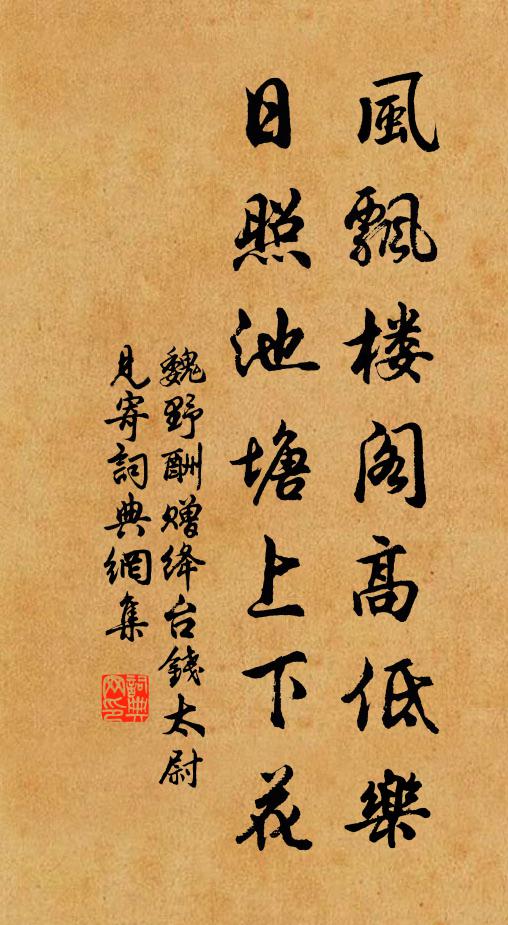 風飄楼阁高低樂
日照池塘上下花
魏野酬赠绛台錢太尉
見寄詞典網集
詞典
网印